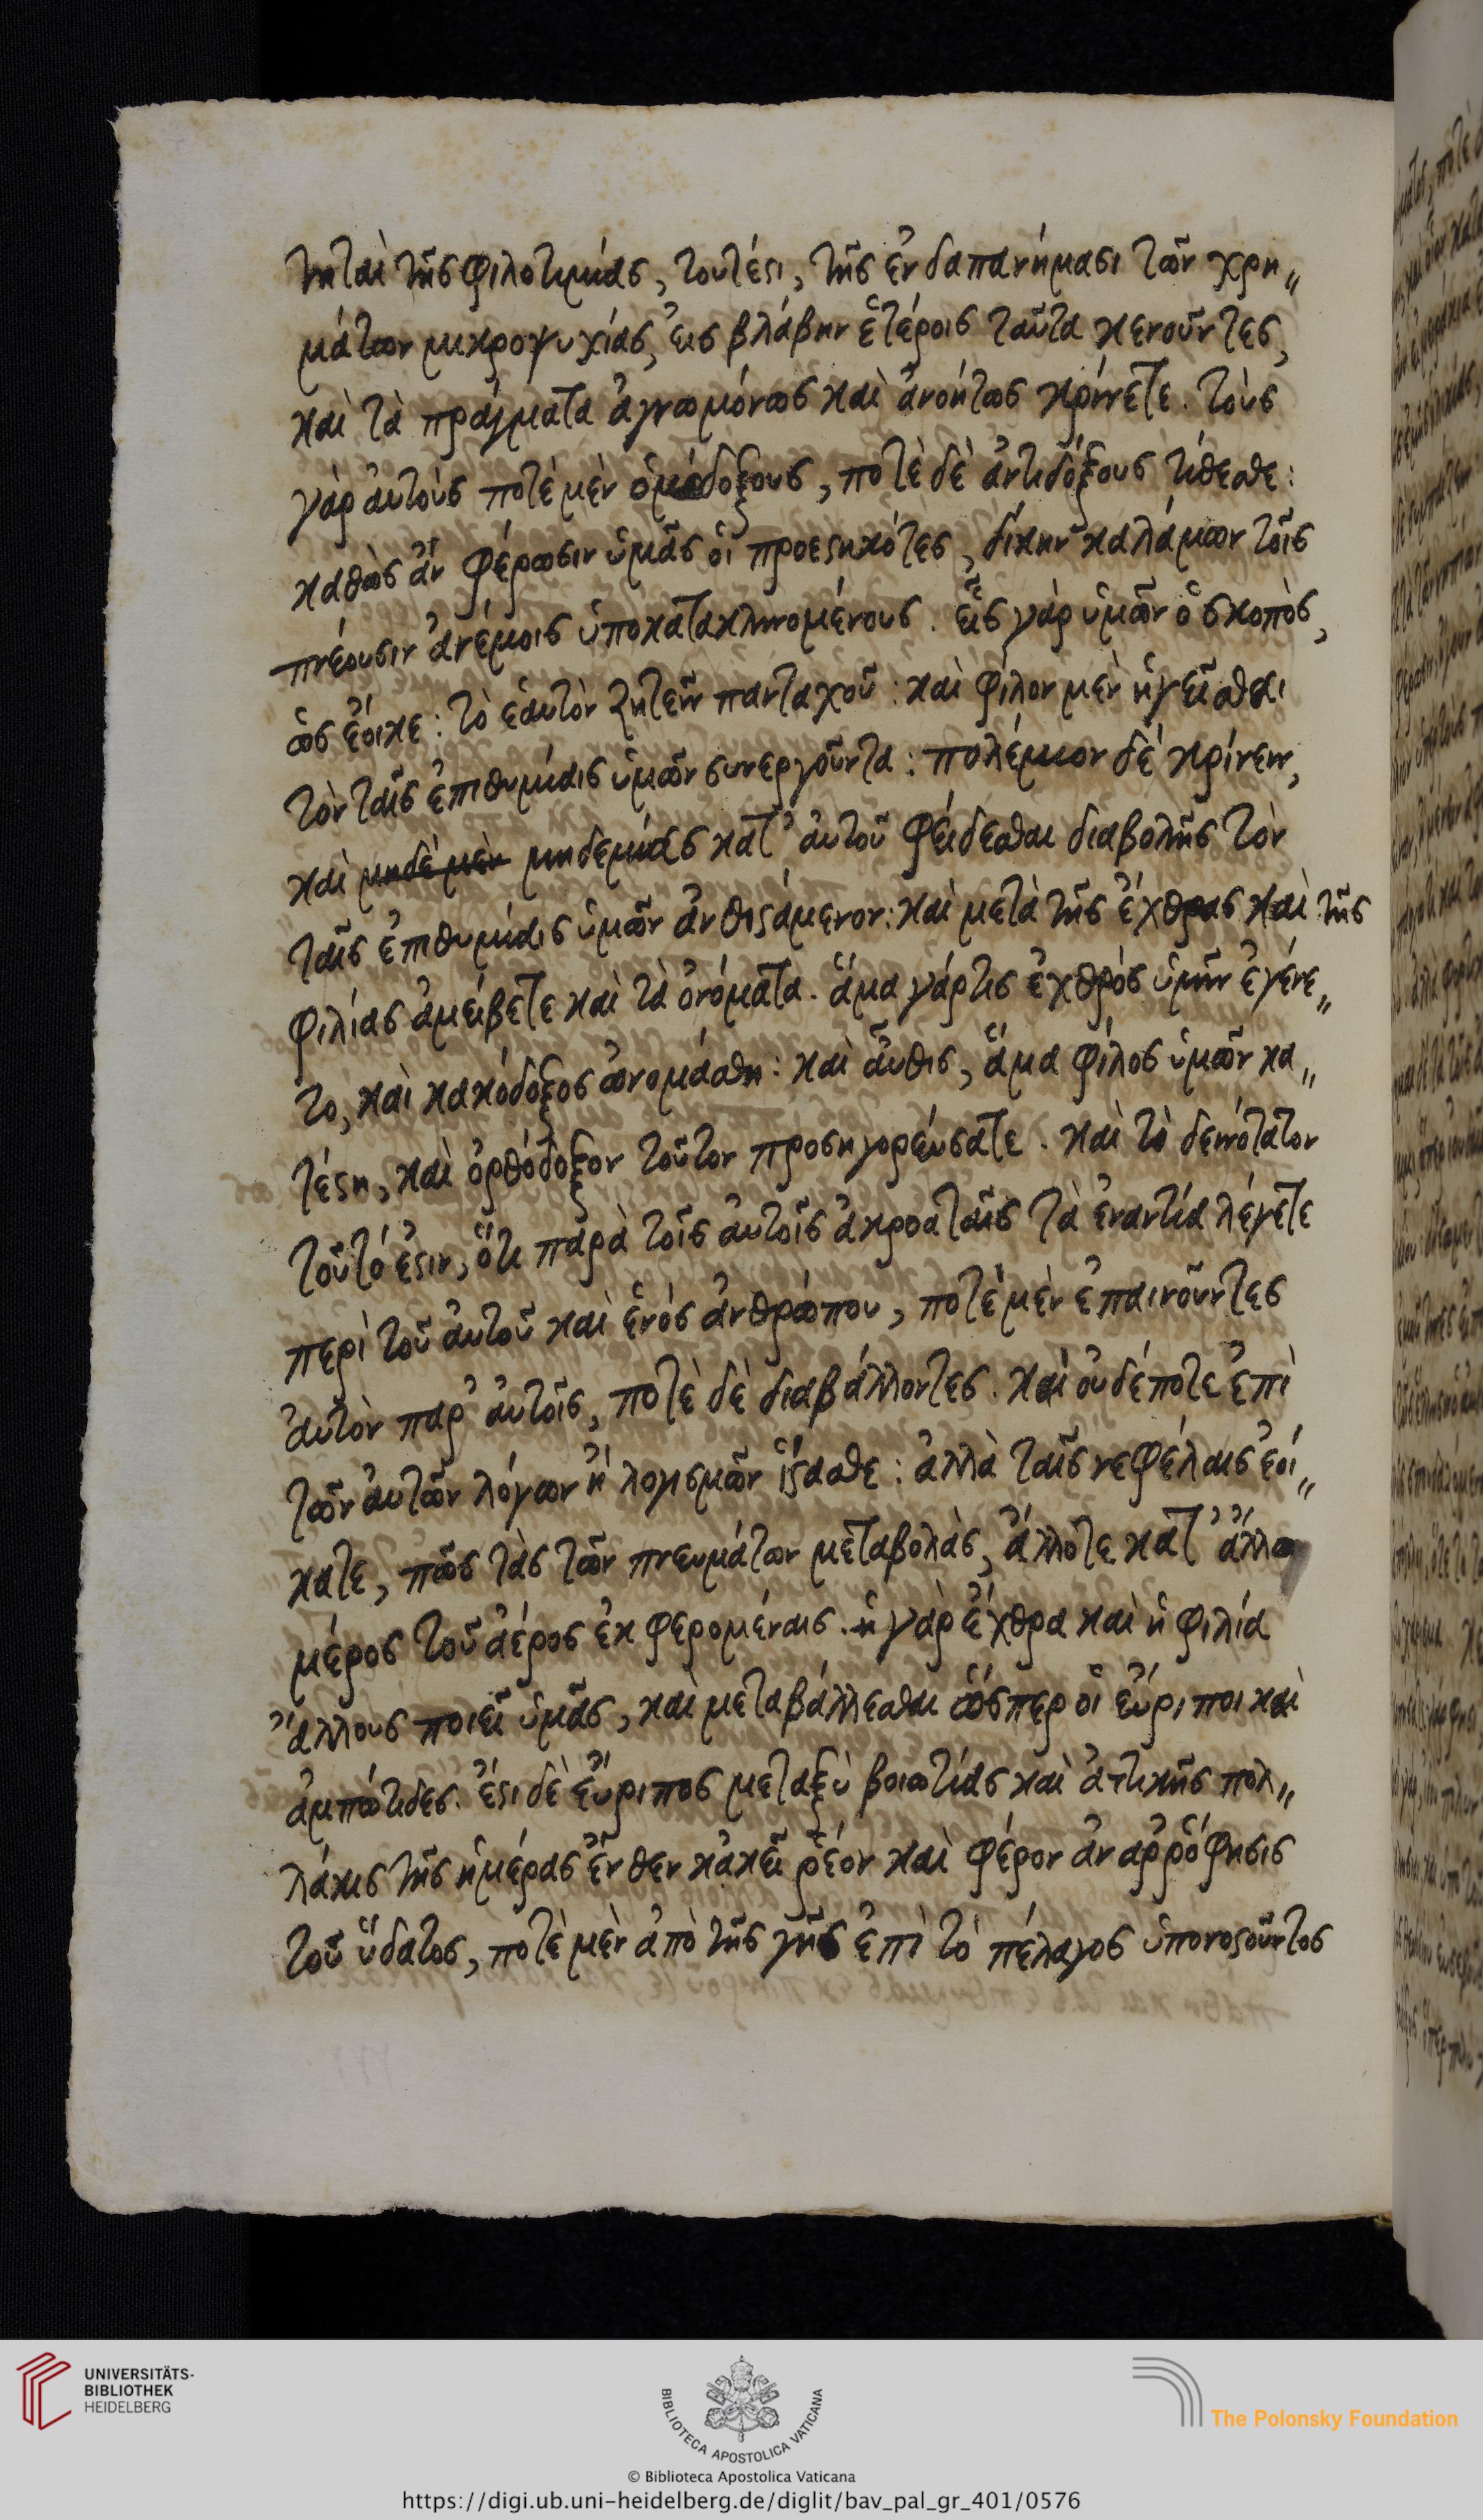 τηταὶ τῆς φιλοτιμίας, τουτέστι, τῆς ἐν δαπανήμασι τῶν χρη„
μάτων μικροψυχίας, εἰς βλάβην ἑτέροις ταῦτα κενοῦντες,
καὶ τὰ πράγματα ἀγνωμόνως καὶ ἀνοήτως κρίνετε. τοὺς
γὰρ αὐτοὺς ποτὲ μὲν ὁμοδόξους, ποτὲ δὲ ἀντιδόξους τίθεσθε:
καθὼς ἂν φέρωσιν ὑμᾶς οἱ προεστηκότες, δίκην καλάμων τοῖς
πνέουσιν ἀνέμοις ὑποκατακλινομένους. εἷς γὰρ ὑμῶν ὁ σκοπὸς,
ὡς ἔοικε: τὸ ἑαυτὸν ζητεῖν πανταχοῦ: καὶ φίλον μὲν ἡγεῖσθαι
τὸν ταῖς ἐπιθυμίαις ὑμῶν συνεργοῦντα: πολέμιον δὲ κρίνειν,
καὶ μηδὲ μὲν μηδεμιᾶς κατ' αὐτοῦ φείδεσθαι διαβολῆς τὸν
ταῖς ἐπιθυμίαις ὑμῶν ἀνθιστάμενον: καὶ μετὰ τῆς ἔχθρας καὶ τῆς
φιλίας ἀμείβετε καὶ τὰ ὀνόματα. ἅμα γάρ τις ἐχθρός ὑμῖν ἐγένε„
το, καὶ κακόδοξος ὠνομάσθη: καὶ αὖθις, ἅμα φίλος ὑμῶν κα„
τέστη, καὶ ὀρθόδοξον τοῦτον προσηγορεύσατε. καὶ τὸ δεινότατον
τοῦτό ἐστιν, ὅτι παρὰ τοῖς αὐτοῖς ἀκροαταῖς τὰ ἐναντία λέγετε
περὶ τοῦ αὐτοῦ καὶ ἑνός ἀνθρώπου, ποτὲ μὲν ἐπαινοῦντες
αὐτὸν παρ' αὐτοῖς, ποτὲ δὲ διαβάλλοντες. καὶ οὐδέποτε ἐπὶ
τῶν αὐτῶν λόγων ἢ λογισμῶν ἵστασθε: ἀλλὰ ταῖς νεφέλαις ἐοί„
κατε, πῶς τὰς τῶν πνευμάτων μεταβολὰς, ἄλλοτε κατ' ἄλλο
μέρος τοῦ ἀέρος ἐκφερομέναις. ἡ γὰρ ἔχθρα καὶ ἡ φιλία
ἄλλους ποιεῖ ὑμᾶς, καὶ μεταβάλλεσθαι ὥσπερ οἱ εὔριποι καὶ
ἀμπώτιδες. ἔστι δὲ εὔριπος μεταξὺ βοιωτίας καὶ ἀττικῆς πολ„
λάκις τῆς ἡμέρας ἔνθεν κἀκεῖ ῥέον καὶ φέρον ἀναρρόφησις
τοῦ ὕδατος, ποτὲ μὲν ἀπὸ τῆς γῆς ἐπὶ τὸ πέλαγος ὑπονοστοῦντος
UNIVERSITÄTS-
BIBLIOTHEK
HEIDELBERG
BIBLIOTECA APOSTOLICA VATICANA
The Polonsky Foundation
© Biblioteca Apostolica Vaticana
https://digi.ub.uni-heidelberg.de/diglit/bav_pal_gr_401/0576